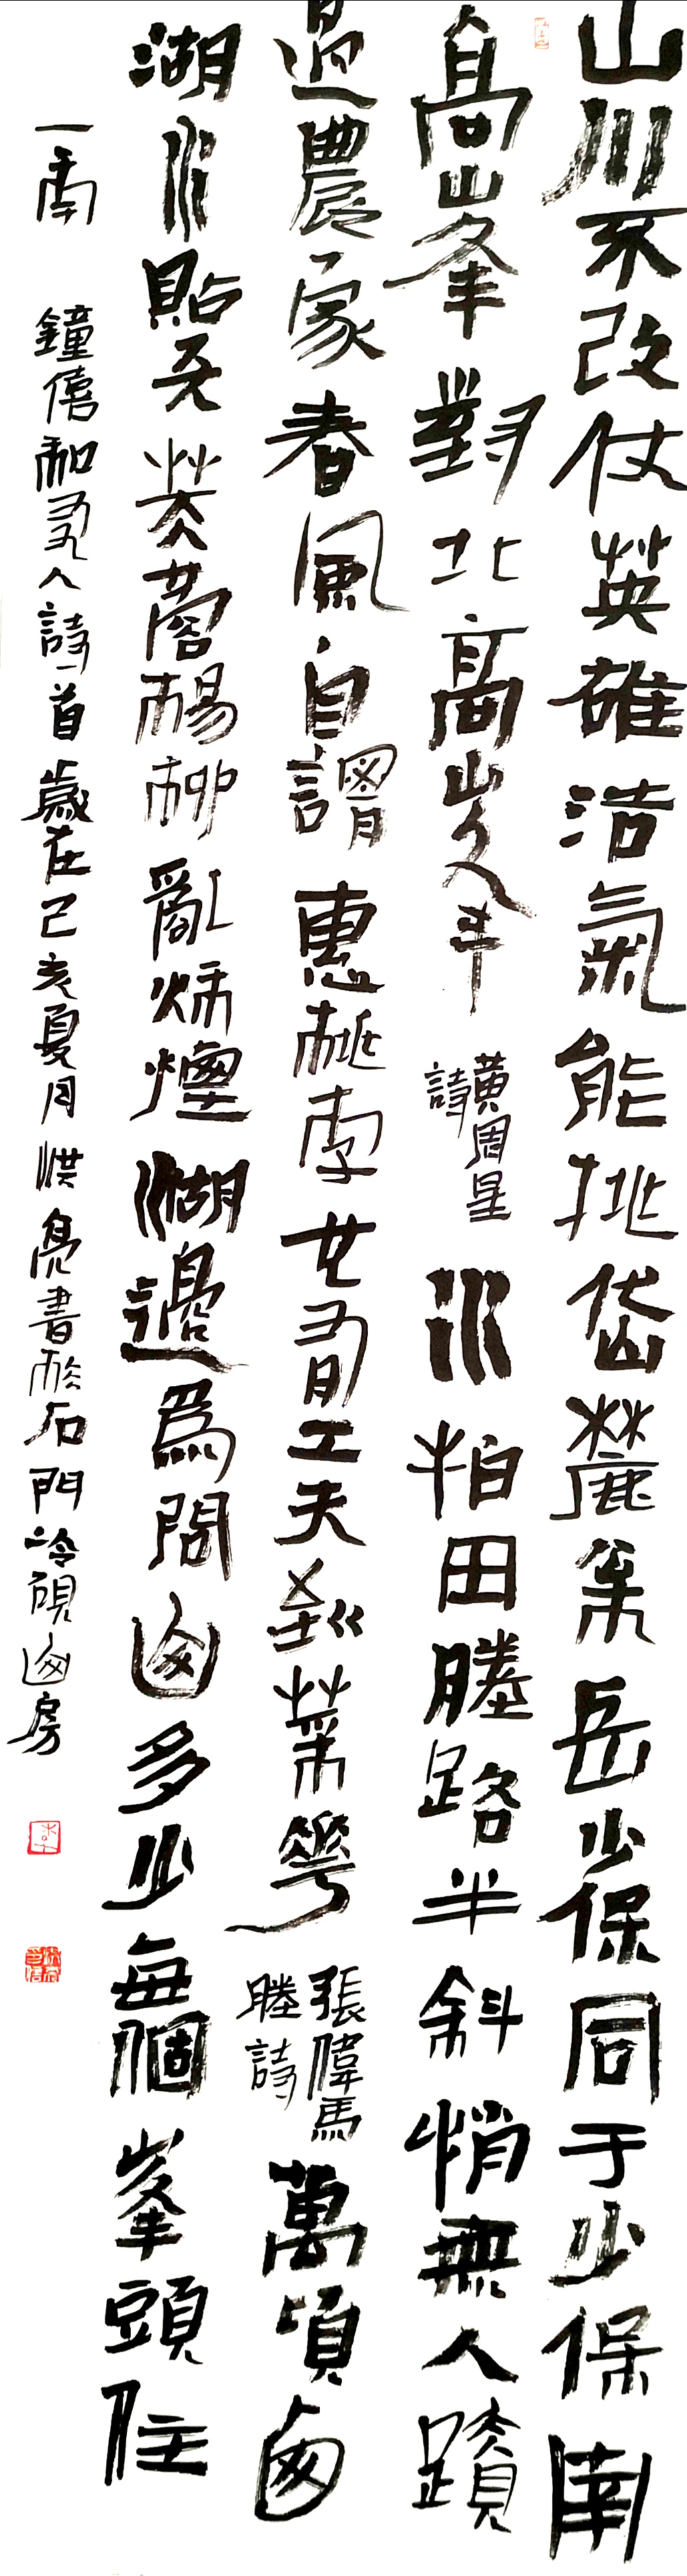 山川不改仗英雄浩氣能挑岱麓枀岳少保同于少保南
高峯對北高峯 黃周星詩 水怕田塍路半斜悄無人蹟
過農家春風自謂惠桃李也有工夫到菜花 張偉馬塍詩 萬頃西
湖水貼天芙蓉楊柳亂秋煙湖邊為問山多少每個峯頭住
一年 鐘僖和友人詩一首 歲在己亥夏月洪亮書於石門冷硯山房